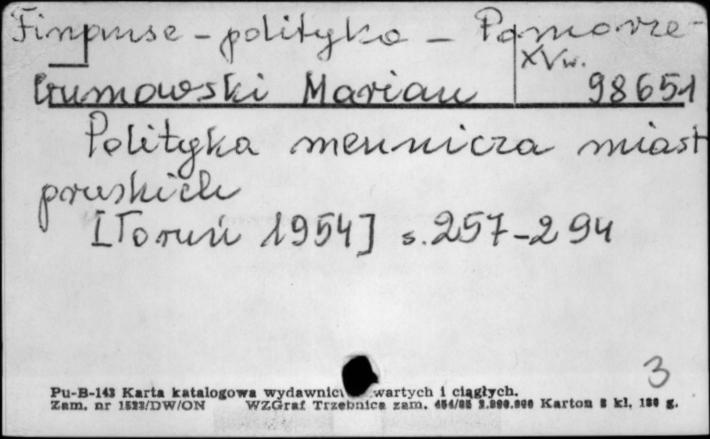 Finanse - polityka - Pomorze -
XV w.
Gumowski Marian 98651
Polityka mennicza miast
pruskich
[Toruń 1954] s. 257-294
3
Pu-B-143 Karta katalogowa wydawnic wartych i ciągłych.
Zam. nr 1523/DW/ON WZGraf Trzebnica zam. 454/85 2.200.000 Karton 3 kl. 180 g.